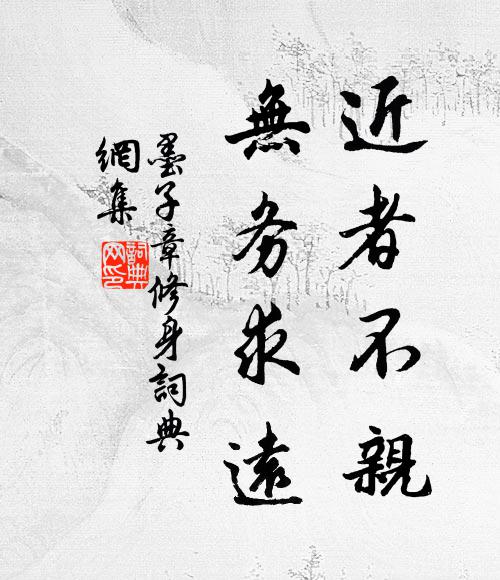 近者不親
無务求遠
墨子章修身詞典
網集
詞典
网印